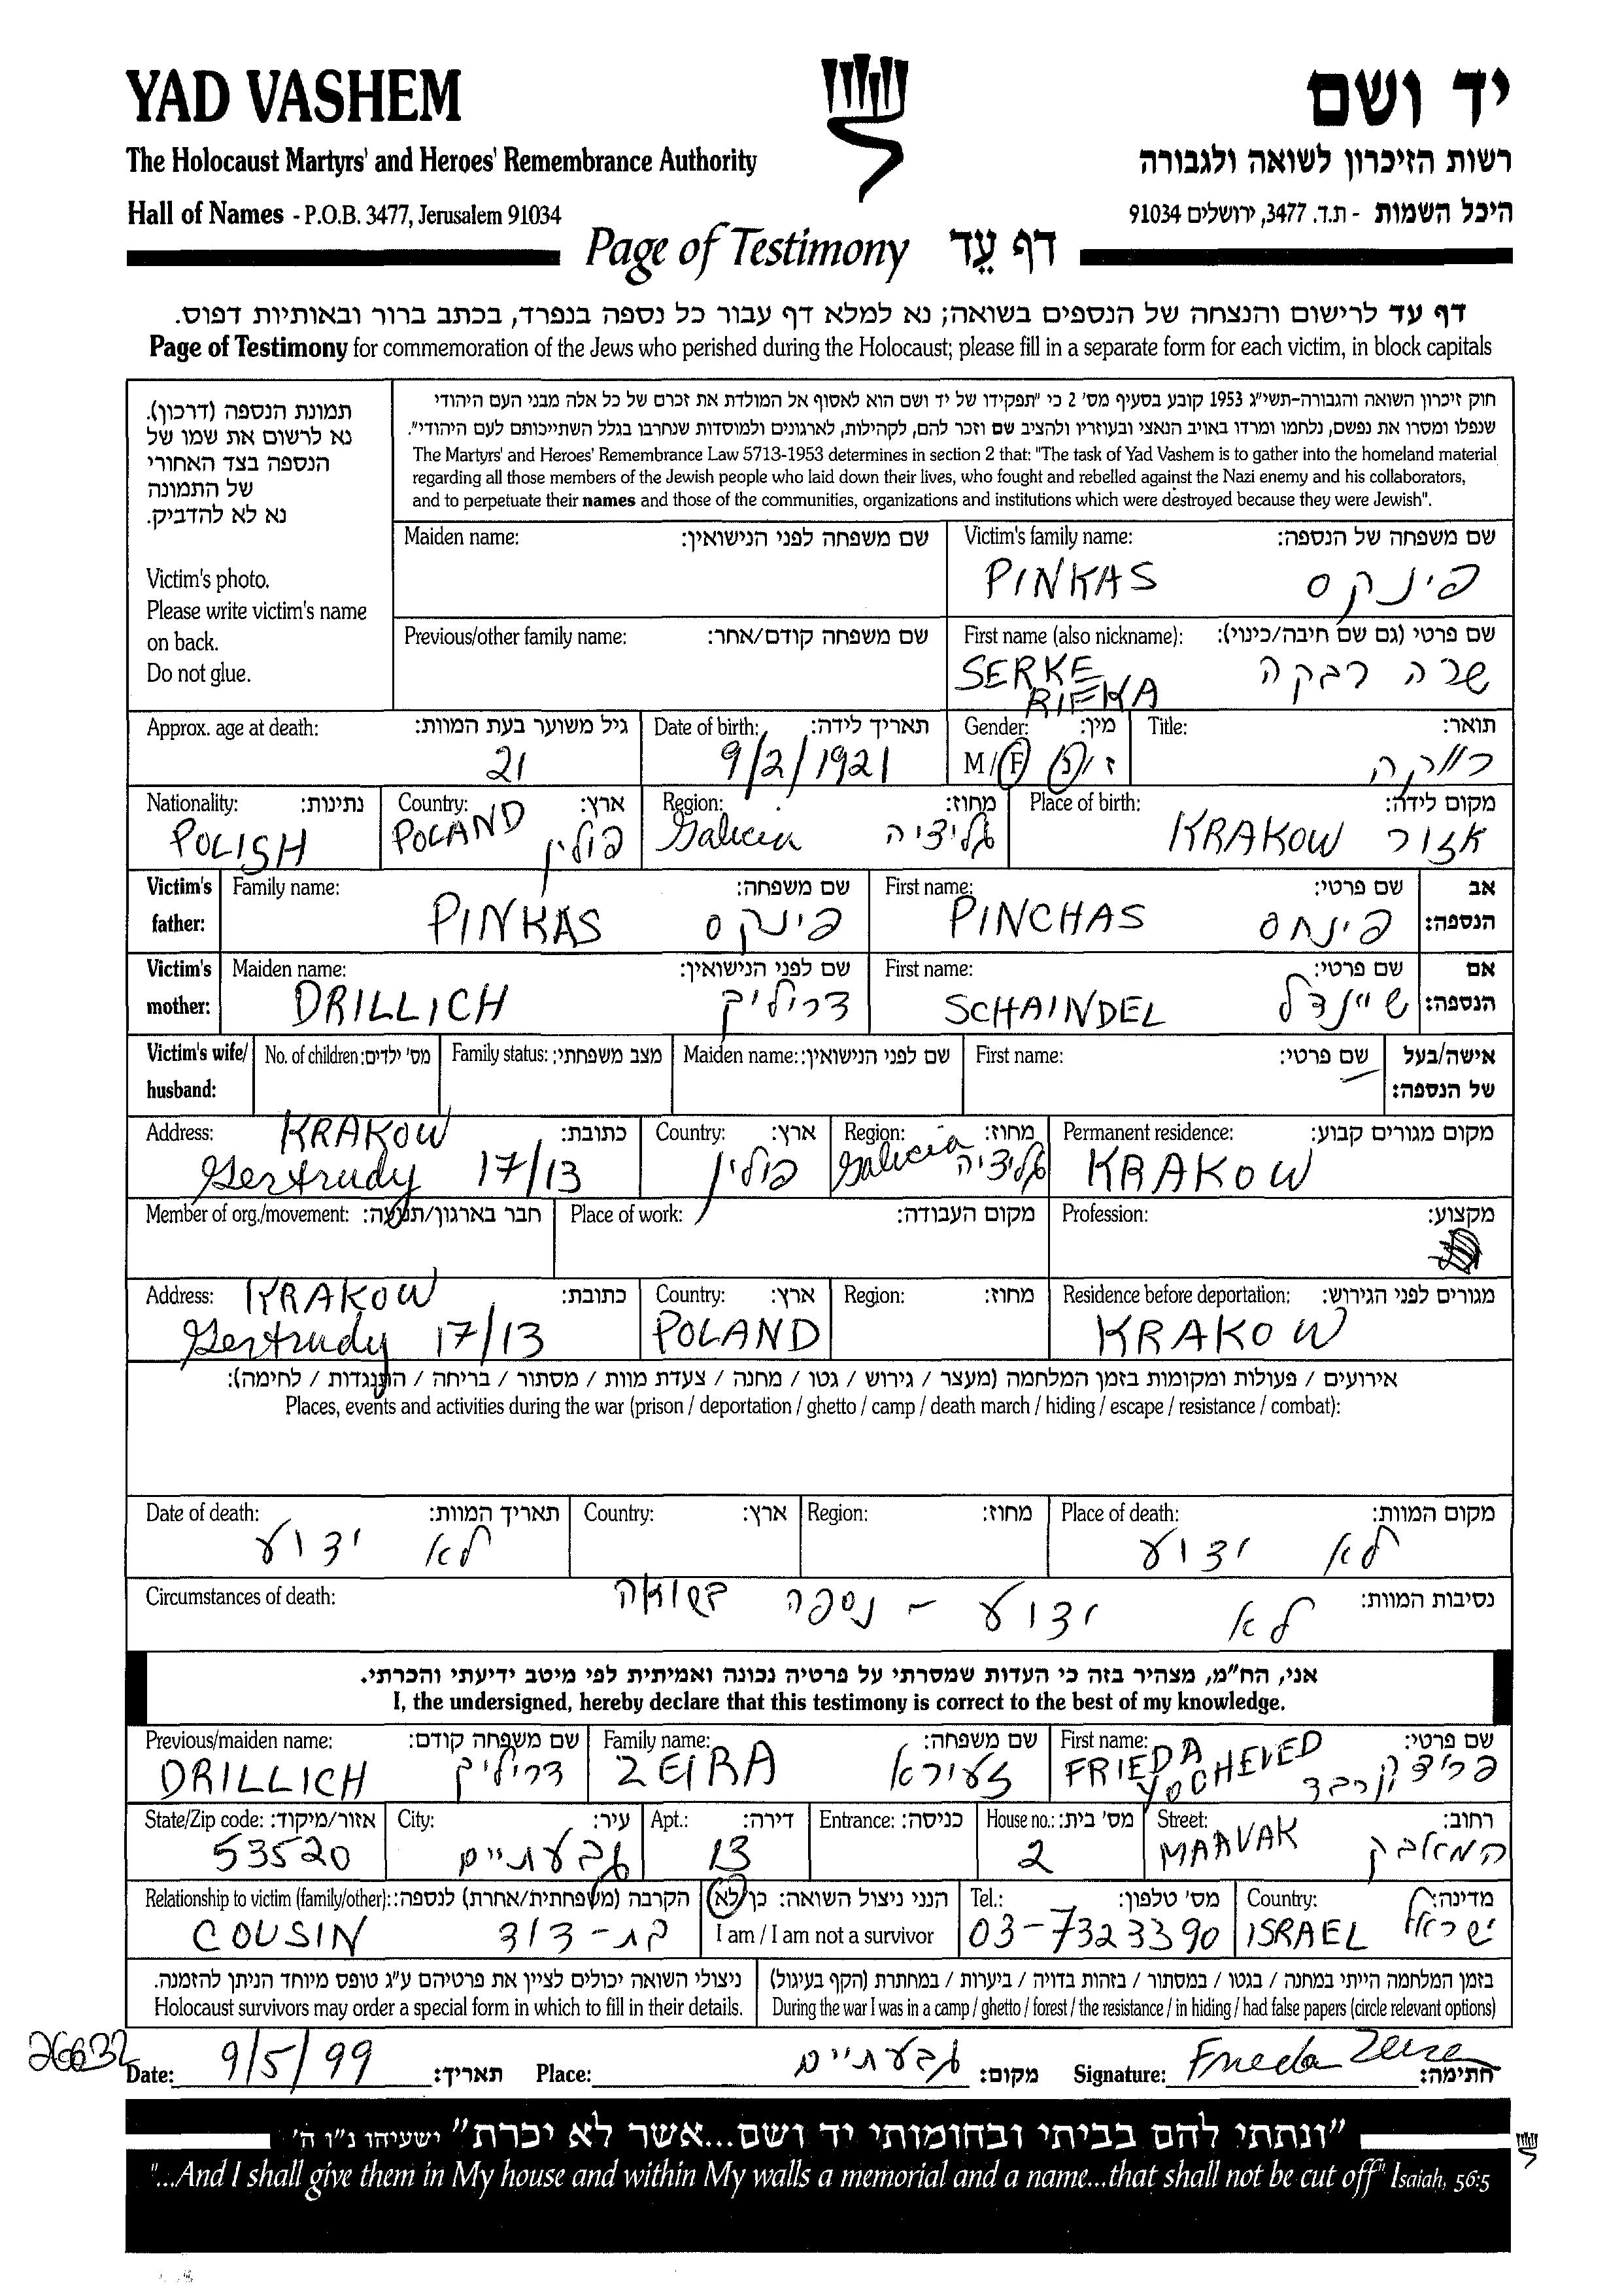 YAD VASHEM
יד ושם
The Holocaust Martyrs' and Heroes' Remembrance Authority
רשות הזיכרון לשואה ולגבורה
Hall of Names - P.O.B. 3477, Jerusalem 91034
היכל השמות - ת.ד. 3477, ירושלים 91034
Page of Testimony דף עֵד
דף עד לרישום והנצחה של הנספים בשואה; נא למלא דף עבור כל נספה בנפרד, בכתב ברור ובאותיות דפוס.
Page of Testimony for commemoration of the Jews who perished during the Holocaust; please fill in a separate form for each victim, in block capitals
תמונת הנספה (דרכון).
נא לרשום את שמו של
הנספה בצד האחורי
של התמונה
נא לא להדביק.
Victim's photo.
Please write victim's name
on back.
Do not glue.
חוק זיכרון השואה והגבורה-תשי"ג 1953 קובע בסעיף מס' 2 כי "תפקידו של יד ושם הוא לאסוף אל המולדת את זכרם של כל אלה מבני העם היהודי
שנפלו ומסרו את נפשם, נלחמו ומרדו באויב הנאצי ובעוזריו ולהציב שם וזכר להם, לקהילות, לארגונים ולמוסדות שנחרבו בגלל השתייכותם לעם היהודי".
The Martyrs' and Heroes' Remembrance Law 5713-1953 determines in section 2 that: "The task of Yad Vashem is to gather into the homeland material
regarding all those members of the Jewish people who laid down their lives, who fought and rebelled against the Nazi enemy and his collaborators,
and to perpetuate their names and those of the communities, organizations and institutions which were destroyed because they were Jewish".
Maiden name: שם משפחה לפני הנישואין:
Victim's family name: שם משפחה של הנספה:
PINKAS פינקס
Previous/other family name: שם משפחה קודם/אחר:
First name (also nickname): שם פרטי (גם שם חיבה/כינוי):
SERKE שרה רבקה
RIFKA
Approx. age at death: גיל משוער בעת המוות:
21
Date of birth: תאריך לידה:
9/2/1921
Gender: מין:
M/F ז/נ
Title: תואר:
Nationality: נתינות:
POLISH
Country: ארץ:
POLAND פולין
Region: מחוז:
Galicia גליציה
Place of birth: מקום לידה:
KRAKOW אזור
Victim's father:
Family name: שם משפחה:
PINKAS פינקס
First name: שם פרטי:
PINCHAS פינחס
אב הנספה:
Victim's mother:
Maiden name: שם לפני הנישואין:
DRILLICH דריליך
First name: שם פרטי:
SCHAINDEL שיינדל
אם הנספה:
Victim's wife/
husband:
No. of children: מס' ילדים:
Family status: מצב משפחתי:
Maiden name: שם לפני הנישואין:
First name: שם פרטי:
אישה/בעל
של הנספה:
Address: כתובת:
KRAKOW
Gertrudy 17/13
Country: ארץ:
פולין
Region: מחוז:
Galicia גליציה
Permanent residence: מקום מגורים קבוע:
KRAKOW
Member of org./movement: חבר בארגון/תנועה:
Place of work: מקום העבודה:
Profession: מקצוע:
Address: כתובת:
KRAKOW
Gertrudy 17/13
Country: ארץ:
POLAND
Region: מחוז:
Residence before deportation: מגורים לפני הגירוש:
KRAKOW
אירועים / פעולות ומקומות בזמן המלחמה (מעצר / גירוש / גטו / מחנה / צעדת מוות / מסתור / בריחה / התנגדות / לחימה):
Places, events and activities during the war (prison / deportation / ghetto / camp / death march / hiding / escape / resistance / combat):
Date of death: תאריך המוות:
לא ידוע
Country: ארץ:
Region: מחוז:
Place of death: מקום המוות:
לא ידוע
Circumstances of death: נסיבות המוות:
לא ידוע - נספה בשואה
אני, הח"מ, מצהיר בזה כי העדות שמסרתי על פרטיה נכונה ואמיתית לפי מיטב ידיעתי והכרתי.
I, the undersigned, hereby declare that this testimony is correct to the best of my knowledge.
Previous/maiden name: שם משפחה קודם:
DRILLICH דריליך
Family name: שם משפחה:
ZEIRA זעירא
First name: שם פרטי:
FRIEDA YOCHEVED פרידה יוכבד
State/Zip code: אזור/מיקוד:
53520
City: עיר:
גבעתיים
Apt.: דירה:
13
Entrance: כניסה:
House no.: מס' בית:
2
Street: רחוב:
MAAVAK המאבק
Relationship to victim (family/other): הקרבה (משפחתית/אחרת) לנספה:
COUSIN בת-דוד
הנני ניצול השואה: כן/לא
I am / I am not a survivor
Tel.: מס' טלפון:
03-7323390
Country: מדינה:
ISRAEL ישראל
ניצולי השואה יכולים לציין את פרטיהם ע"ג טופס מיוחד הניתן להזמנה.
Holocaust survivors may order a special form in which to fill in their details.
בזמן המלחמה הייתי במחנה / בגטו / במסתור / בזהות בדויה / ביערות / במחתרת (הקף בעיגול)
During the war I was in a camp / ghetto / forest / the resistance / in hiding / had false papers (circle relevant options)
26632
Date: 9/5/99 תאריך:
Place: גבעתיים מקום:
Signature: Frieda Zeira חתימה:
"ונתתי להם בביתי ובחומותי יד ושם...אשר לא יכרת" ישעיהו נ"ו ה'
"...And I shall give them in My house and within My walls a memorial and a name...that shall not be cut off" Isaiah, 56:5